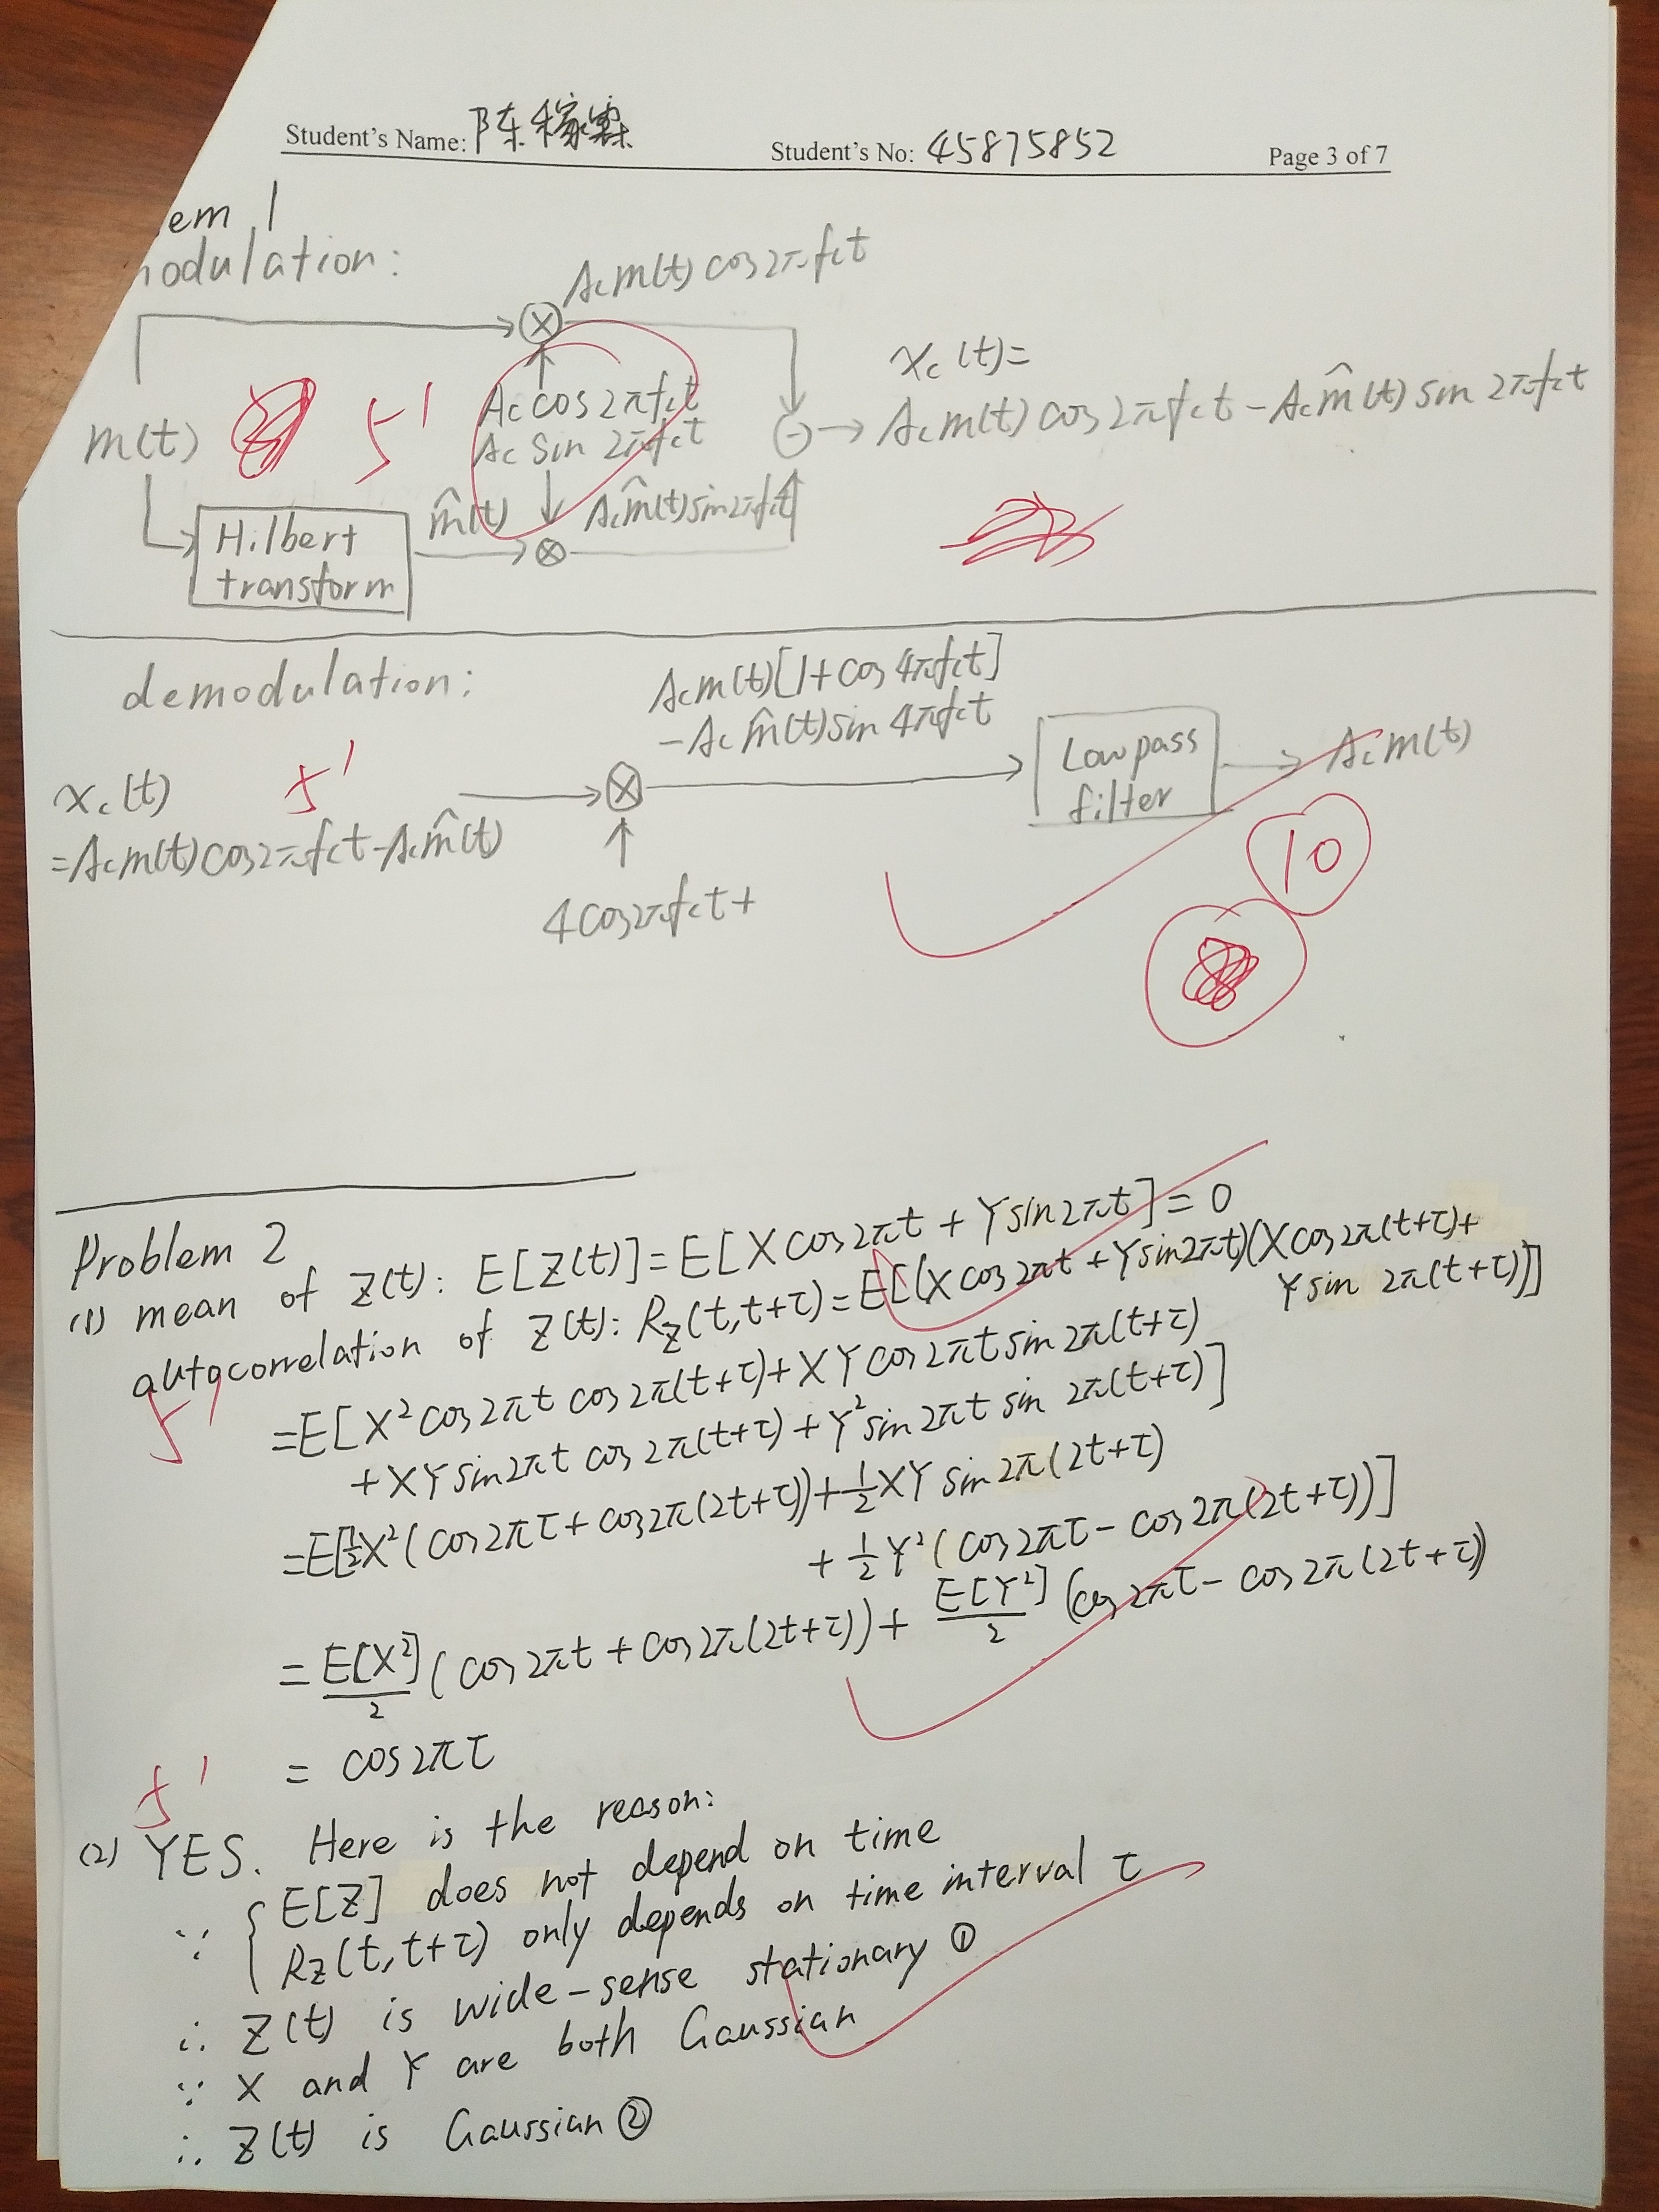 Student's Name: 陈稼霖
Student's No: 45875852
Page 3 of 7
em 1
odulation:
Acm(t) cos2πfct
Ac cos2πfct
Ac sin 2πfct
m(t)
5'
xc(t)=
Acm(t) cos2πfct - Acm̂(t) sin 2πfct
Hilbert
transform
m̂(t)
Acm̂(t)sin2πfct
demodulation:
Acm(t)[1+cos4πfct]
-Acm̂(t)sin4πfct
xc(t)
=Acm(t)cos2πfct-Acm̂(t)
5'
4cos2πfct+
Lowpass
filter
Acm(t)
10
Problem 2
(1) mean of Z(t): E[Z(t)]=E[Xcos2πt + Ysin2πt]=0
autocorrelation of Z(t): RZ(t,t+τ)=E[(Xcos2πt+Ysin2πt)(Xcos2π(t+τ)+
Ysin 2π(t+τ))]
5'
=E[X²cos2πt cos2π(t+τ)+XYcos2πtsin2π(t+τ)
+XYsin2πt cos2π(t+τ)+Y²sin2πt sin 2π(t+τ)]
=E[½X²(cos2πτ+cos2π(2t+τ))+½XY sin2π(2t+τ)
+½Y²(cos2πτ-cos2π(2t+τ))]
=E[X²]/2 (cos2πt+cos2π(2t+τ))+E[Y²]/2 (cos2πτ-cos2π(2t+τ))
= cos2πτ
5'
(2) YES. Here is the reason:
∵ { E[Z] does not depend on time
RZ(t,t+τ) only depends on time interval τ
∴ Z(t) is wide-sense stationary ①
∵ X and Y are both Gaussian
∴ Z(t) is Gaussian ②